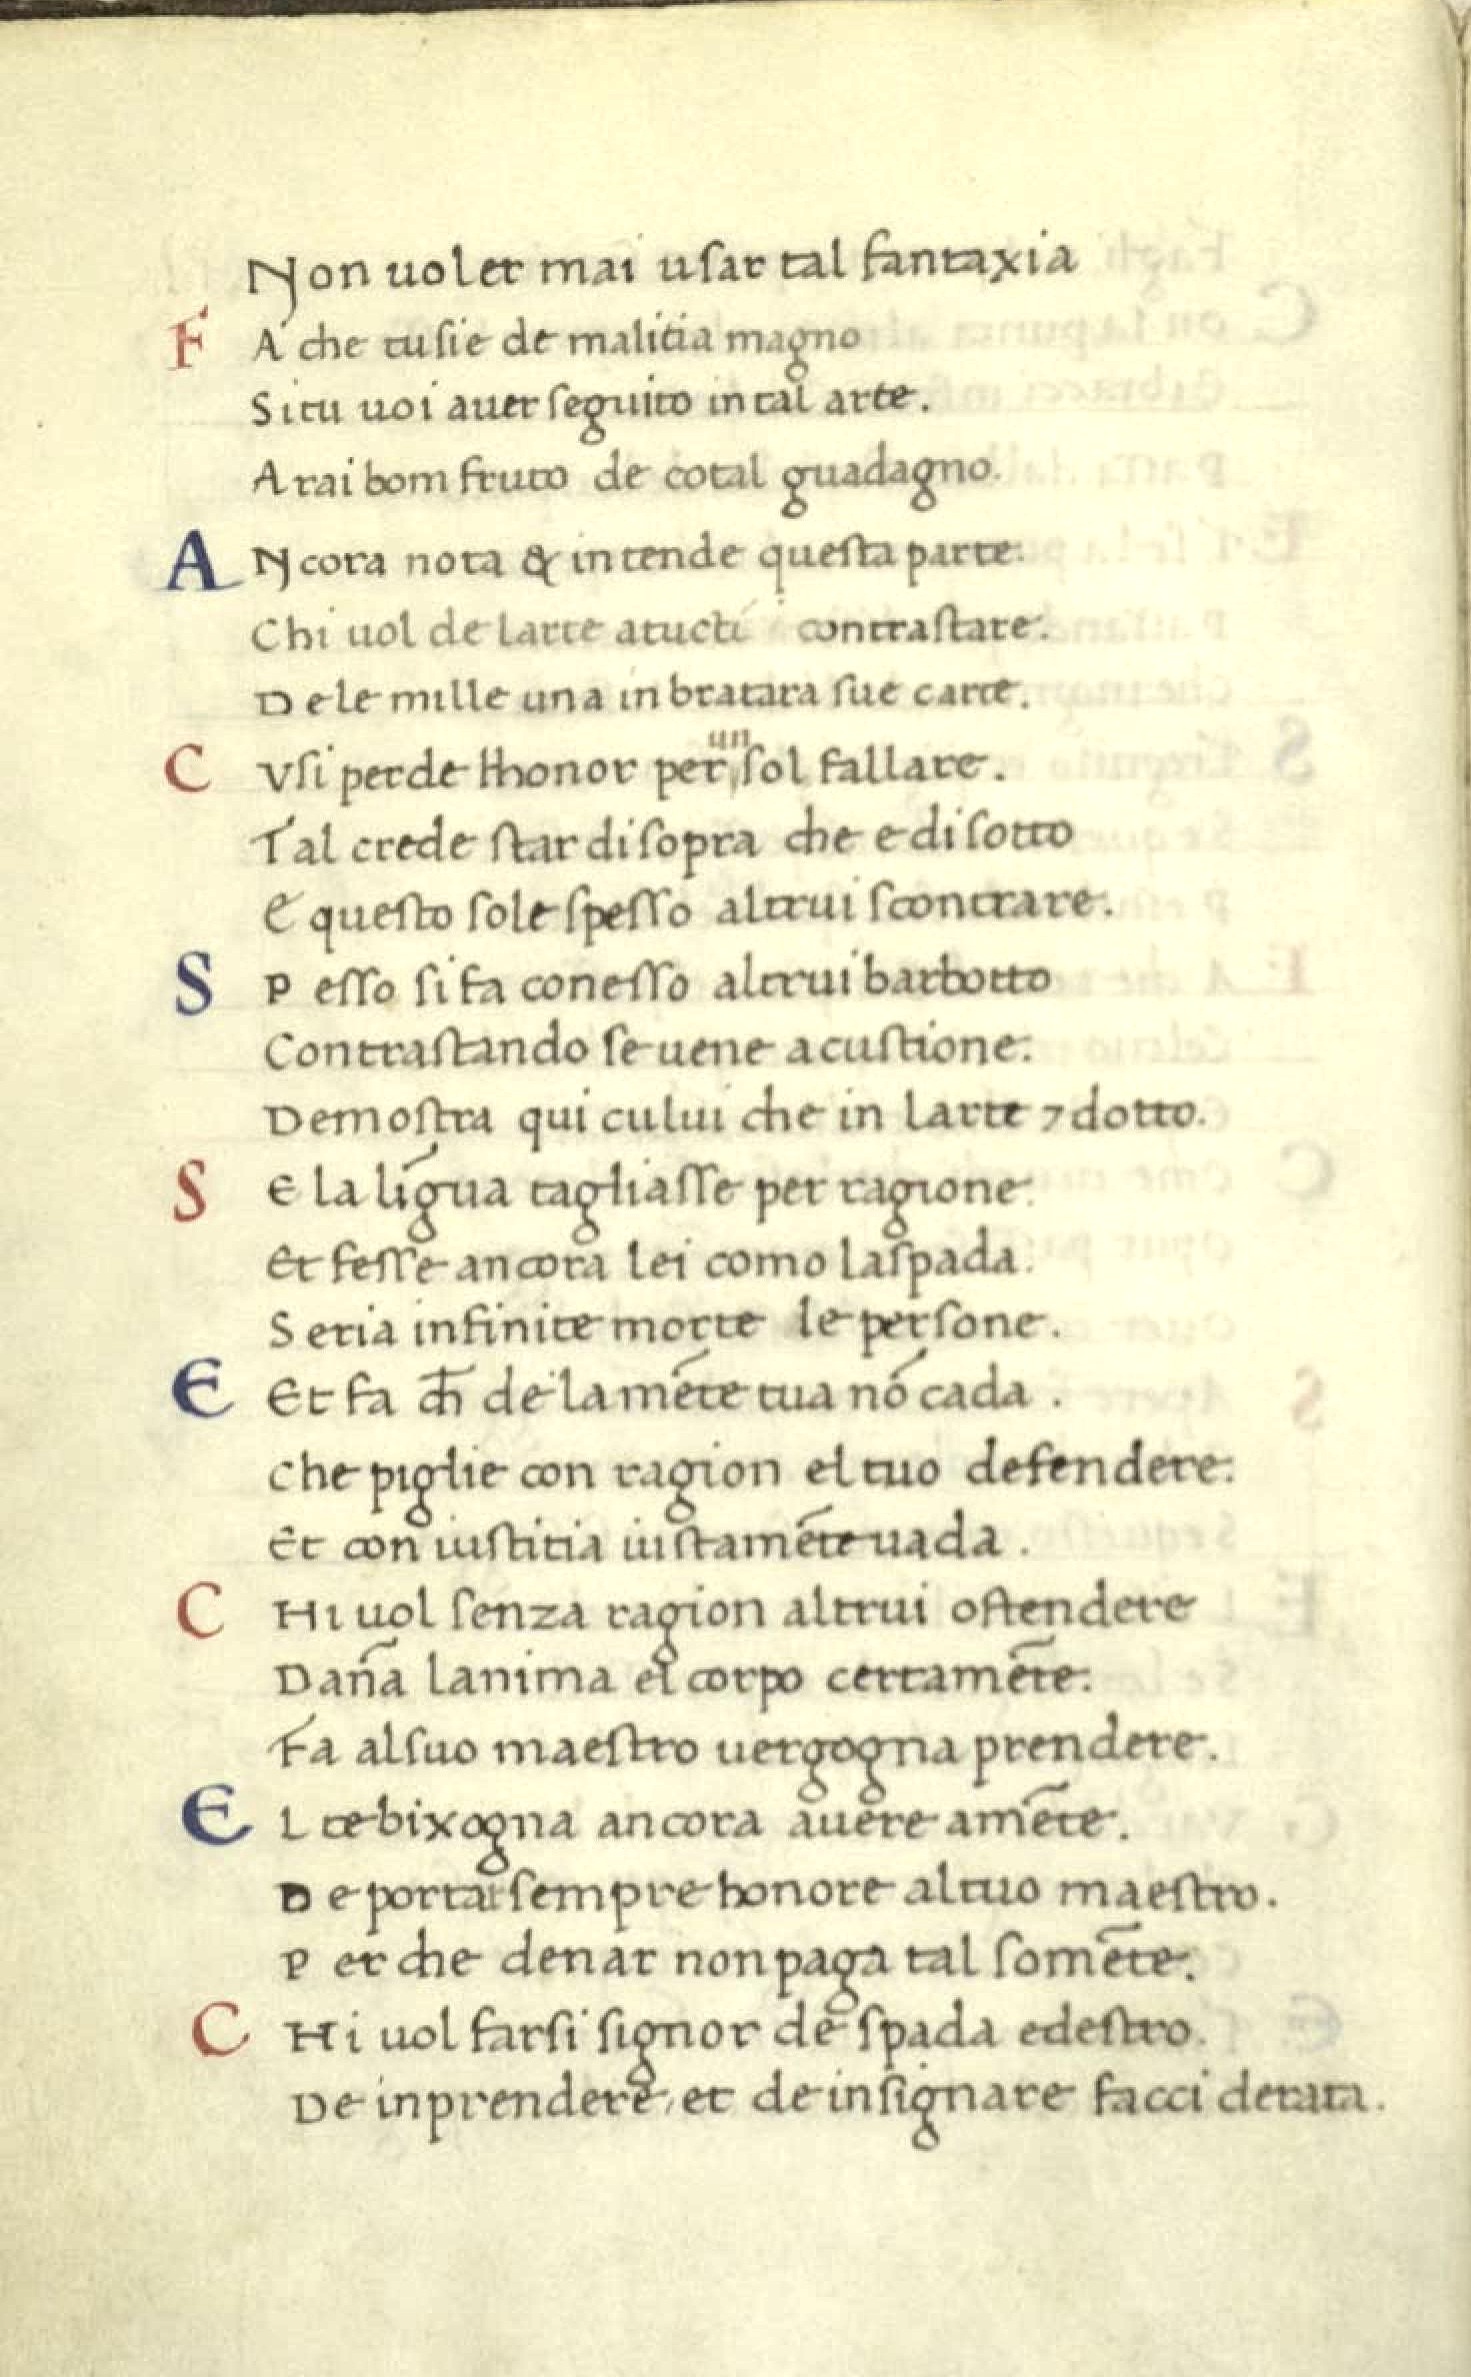 Non uoler mai uſar tal fantaxia
FA che tu ſie de malitia magno
Si tu uoi auer ſeguito in tal arte.
Arai bom fruto de cotal guadagno.
ANcora nota & intende queſta parte:
Chi uol de larte atucti contraſtare:
De le mille una in bratara ſue carte.
CVſi perde lhonor per un ſol fallare.
Tal crede ſtar di ſopra che e di ſotto
E queſto ſole ſpeſſo altrui ſcontrare.
SPeſſo ſi fa con eſſo altrui barbotto
Contraſtando ſe uene a cuſtione:
Demoſtra qui cului che in larte ⁊ dotto.
SE la līgua tagliaſſe per ragione:
Et feſſe ancora lei como la ſpada.
Seria infinite morte le perſone.
E Et fa ch̄ de la mēte tua nō cada .
Che piglie con ragion el tuo defendere:
Et con iuſtitia iuſtamēte uada .
CHi uol ſenza ragion altrui oftendere
Dan̄a lanima el corpo certamēte:
Fa al ſuo maeſtro uergogna prendere.
EL te bixogna ancora auere a mēte.
De portar ſempre honore al tuo maeſtro.
Perche denar non paga tal ſomēte.
CHi uol farſi ſignor de ſpada e deſtro.
De inprendere, et de inſignare facci derata.